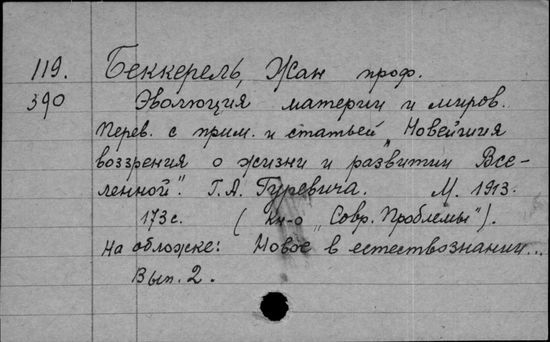 119. Беккерель, Жан проф.
390 Эволюция материи и миров.
Перев. с прим. и статьей „Новейшия
воззрения о жизни и развитии Все-
ленной". Г. А. Гуревича. М. 1913.
173 с. (Кн-о „Совр. Проблемы").
На обложке: Новое в естествознании...
Вып. 2.